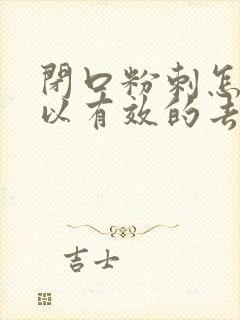 閉口粉刺怎
以有效的去
吉士